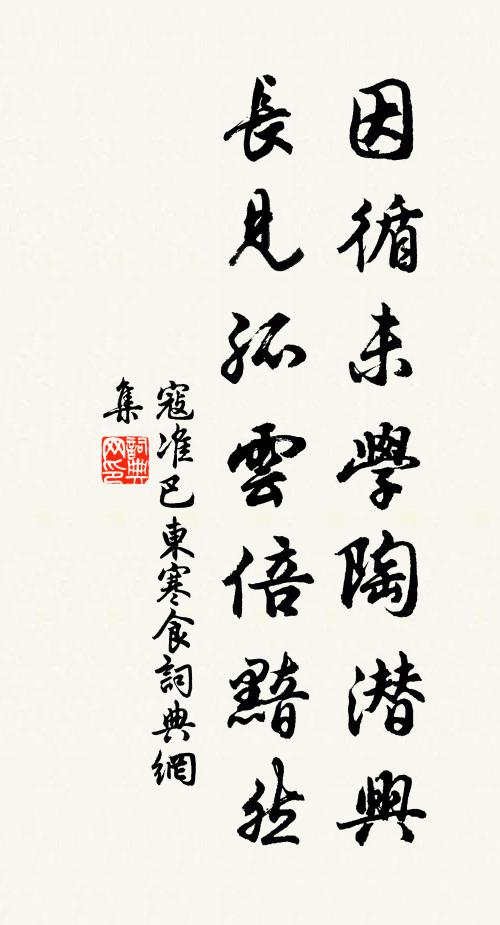 因循未學陶潜興
長見孤雲倍黯然
寇准巴東寒食詞典網
集
詞典網印